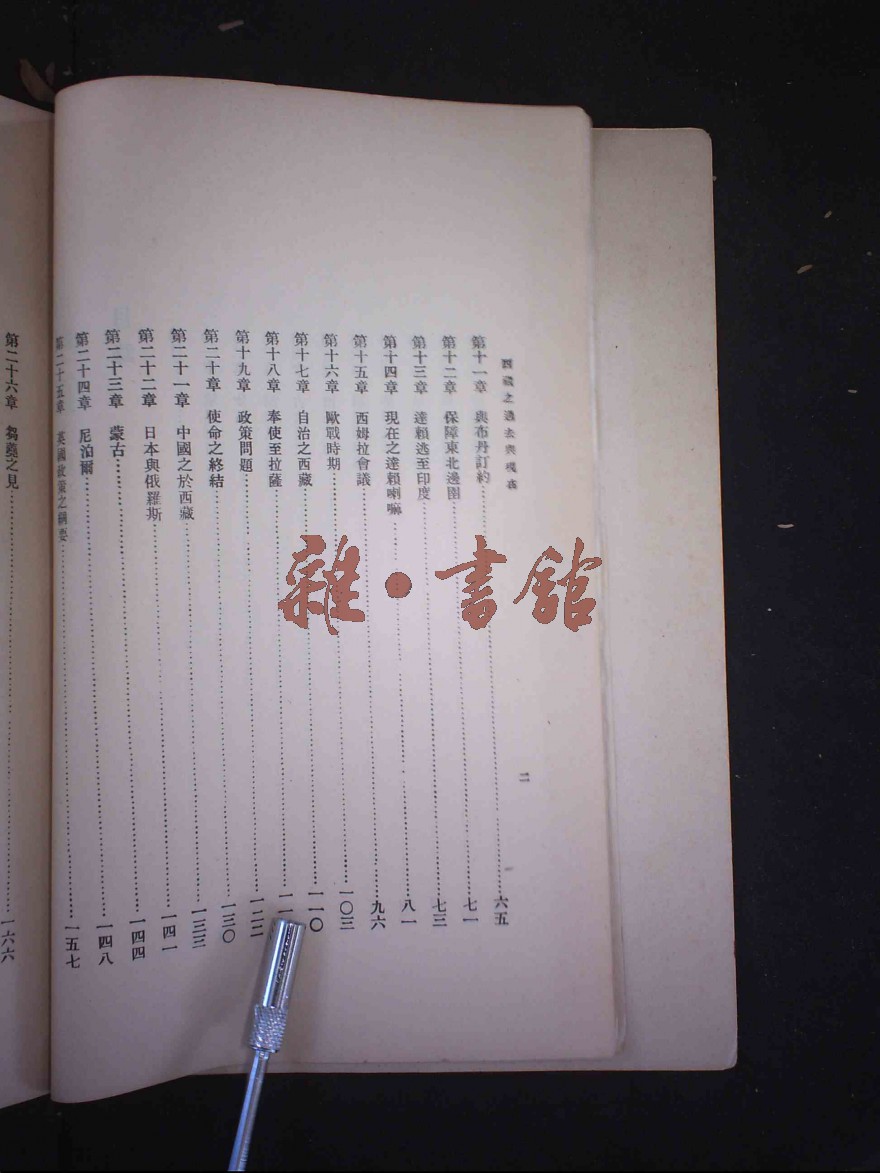 西藏之過去與現在
二
第十一章 與布丹訂約 六五
第十二章 保障東北邊圉 七一
第十三章 達賴逃至印度 七三
第十四章 現在之達賴喇嘛 八一
第十五章 西姆拉會議 九六
第十六章 歐戰時期 一〇三
第十七章 自治之西藏 一一〇
第十八章 奉使至拉薩 一一
第十九章 政策問題 一二二
第二十章 使命之終結 一三〇
第二十一章 中國之於西藏 一三三
第二十二章 日本與俄羅斯 一四一
第二十三章 蒙古 一四四
第二十四章 尼泊爾 一四八
第二十五章 英國政策之綱要 一五七
第二十六章 芻蕘之見 一六六
雜·書館